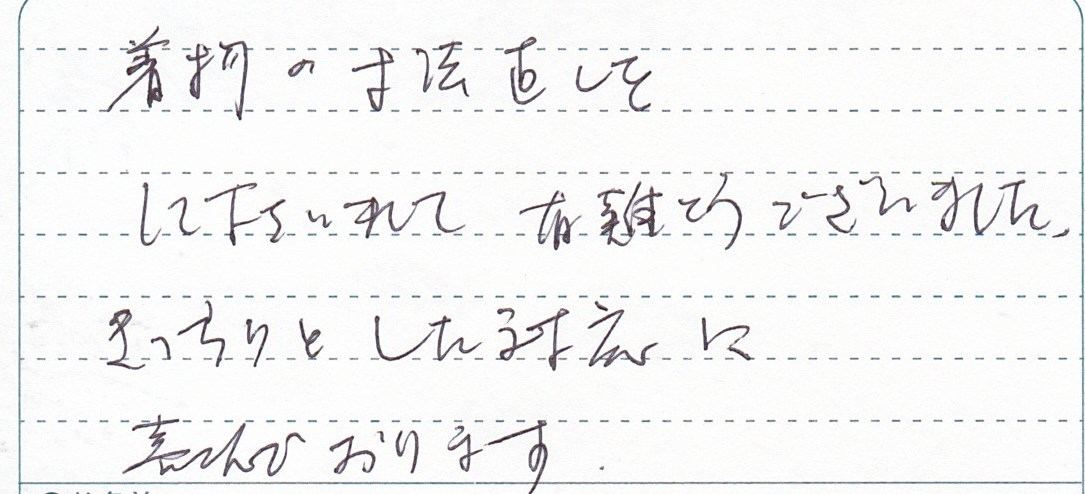 着物の寸法直しを
して下さいまして 有難とうございました、
きっちりとした対応に
喜こんびおります.